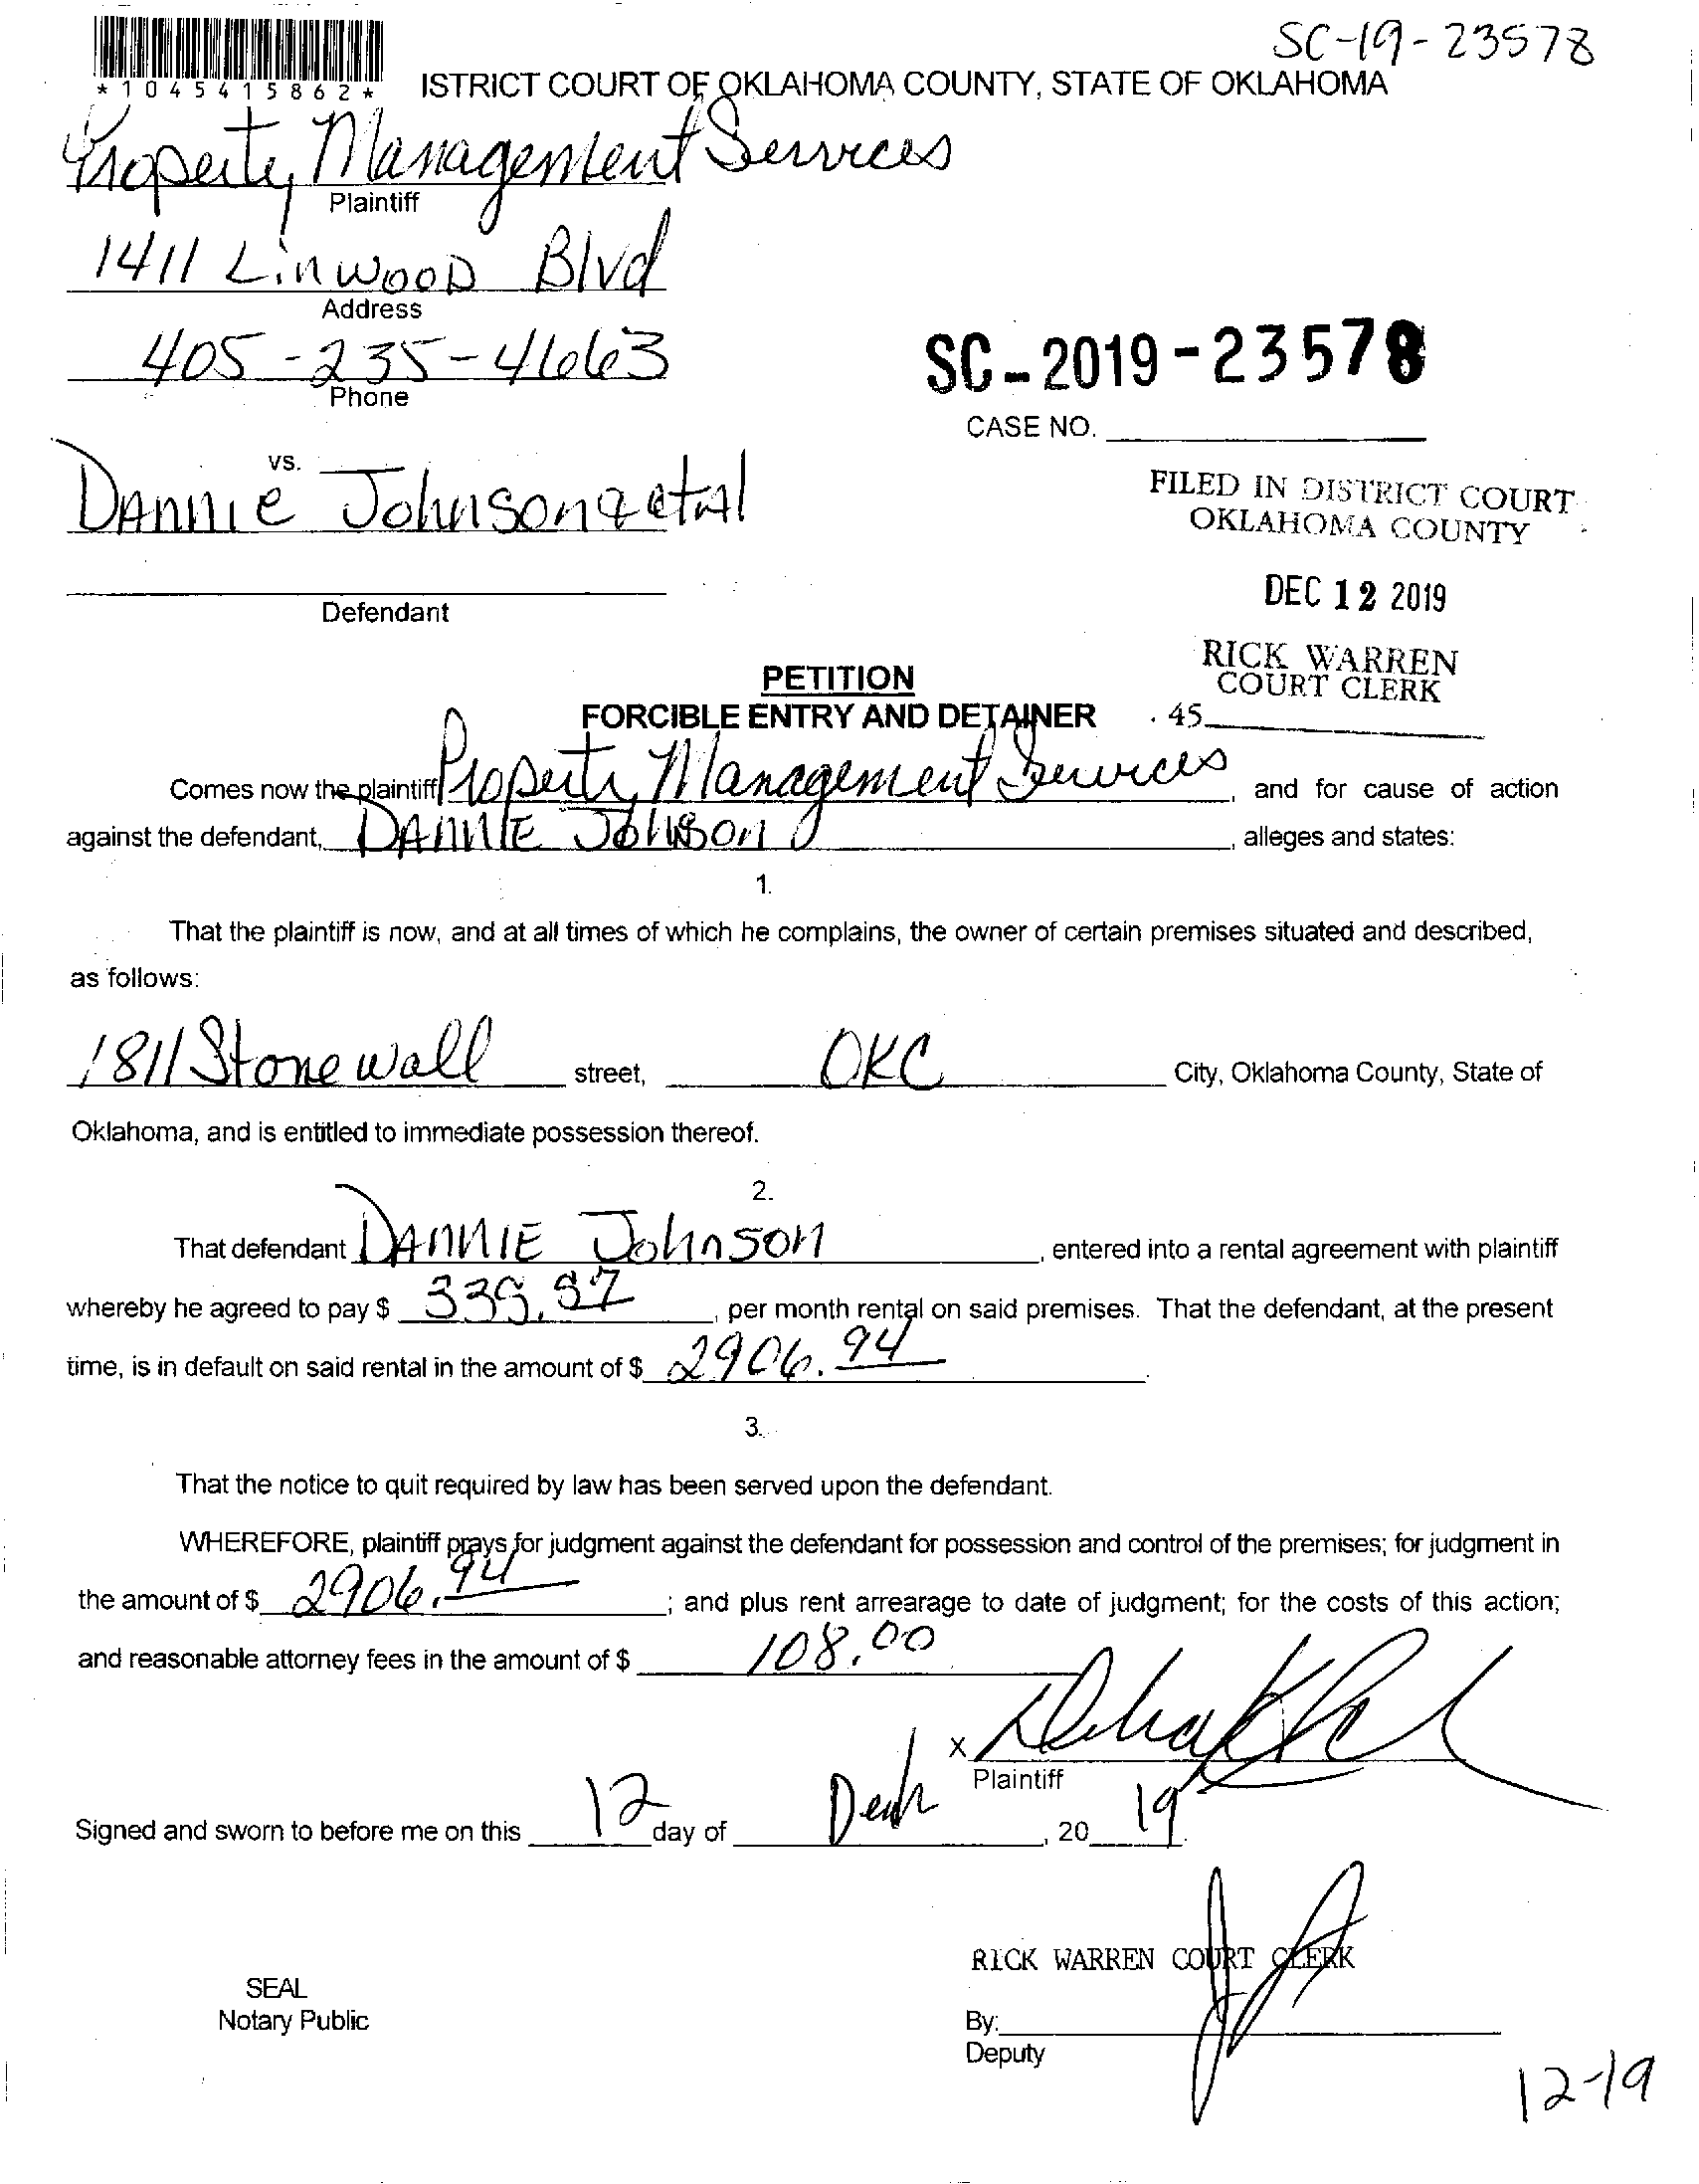 SC-19-23578
*1045415862*
ISTRICT COURT OF OKLAHOMA COUNTY, STATE OF OKLAHOMA
Property Management Services
Plaintiff
1411 Linwood Blvd
Address
405-235-4663
Phone
SC-2019-23578
CASE NO.
vs.
Dannie Johnson & etal
FILED IN DISTRICT COURT
OKLAHOMA COUNTY
DEC 12 2019
Defendant
RICK WARREN
COURT CLERK
PETITION
FORCIBLE ENTRY AND DETAINER
45
Comes now the plaintiff Property Management Services, and for cause of action
against the defendant, Dannie Johnson, alleges and states:
1.
That the plaintiff is now, and at all times of which he complains, the owner of certain premises situated and described,
as follows:
1811 Stonewall street, OKC City, Oklahoma County, State of
Oklahoma, and is entitled to immediate possession thereof.
2.
That defendant Dannie Johnson, entered into a rental agreement with plaintiff
whereby he agreed to pay $ , per month rental on said premises. That the defendant, at the present
time, is in default on said rental in the amount of $ 2906.94.
3.
That the notice to quit required by law has been served upon the defendant.
WHEREFORE, plaintiff prays for judgment against the defendant for possession and control of the premises; for judgment in
the amount of $ 2906.94; and plus rent arrearage to date of judgment; for the costs of this action;
and reasonable attorney fees in the amount of $ 108.00
X
Plaintiff
Signed and sworn to before me on this 12 day of , 2019.
RICK WARREN COURT CLERK
SEAL
Notary Public
By:
Deputy
12-19